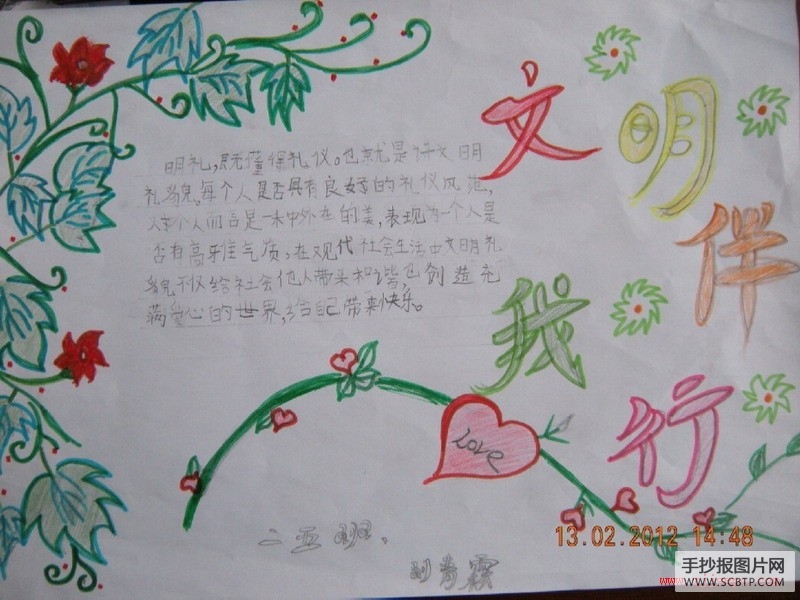 文明伴
我行
明礼,既懂得礼仪。也就是讲文明
礼貌,每个人是否具有良好的礼仪风范,
对个人而言是一种外在的美,表现为一个人是
否有高雅气质,在现代社会生活中文明礼
貌不仅给社会他人带来和谐,也创造充
满爱心的世界,给自己带来快乐。
Love
二五班.
青霞
13.02.2012 14:48
手抄报图片网
WWW.SCBTP.COM